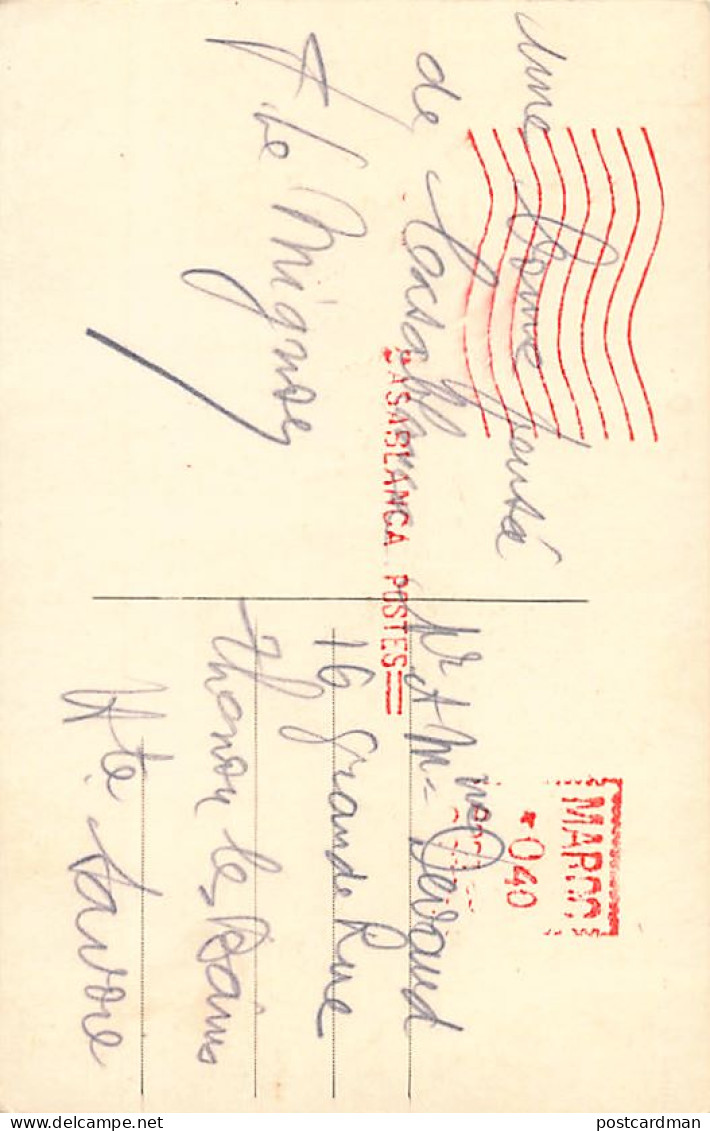 Une bonne pensée
de Casablanca
A Le Mignon
CASABLANCA POSTES
MAROC
0,40
Mr et Mme Devaud
16 Grande Rue
Thonon les Bains
Hte Savoie
postcardman